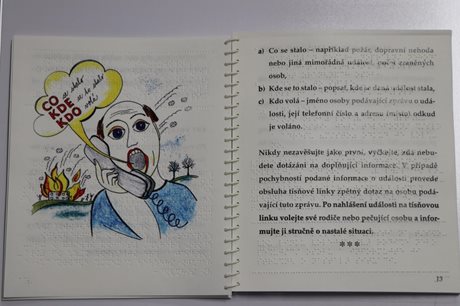 CO se stalo
KDE se to stalo
KDO volá?
a) Co se stalo – například požár, dopravní nehoda
nebo jiná mimořádná událost, počet zraněných
osob,
b) Kde se to stalo – popsat, kde je daná událost stala,
c) Kdo volá – jméno osoby podávající zprávu o udá-
losti, její telefonní číslo a adresu (místo) odkud
je voláno.
Nikdy nezavěšujte jako první, vyčkejte, zda nebu-
dete dotázáni na doplňující informace. V případě
pochybností podané informace o události provede
obsluha tísňové linky zpětný dotaz na osobu podá-
vající tuto zprávu. Po nahlášení události na tísňovou
linku volejte své rodiče nebo pečující osobu a infor-
mujte ji stručně o nastalé situaci.
***
13